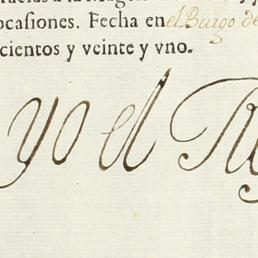 ocasiones. Fecha en el Burgo de
cientos y veinte y vno.
yo el Re